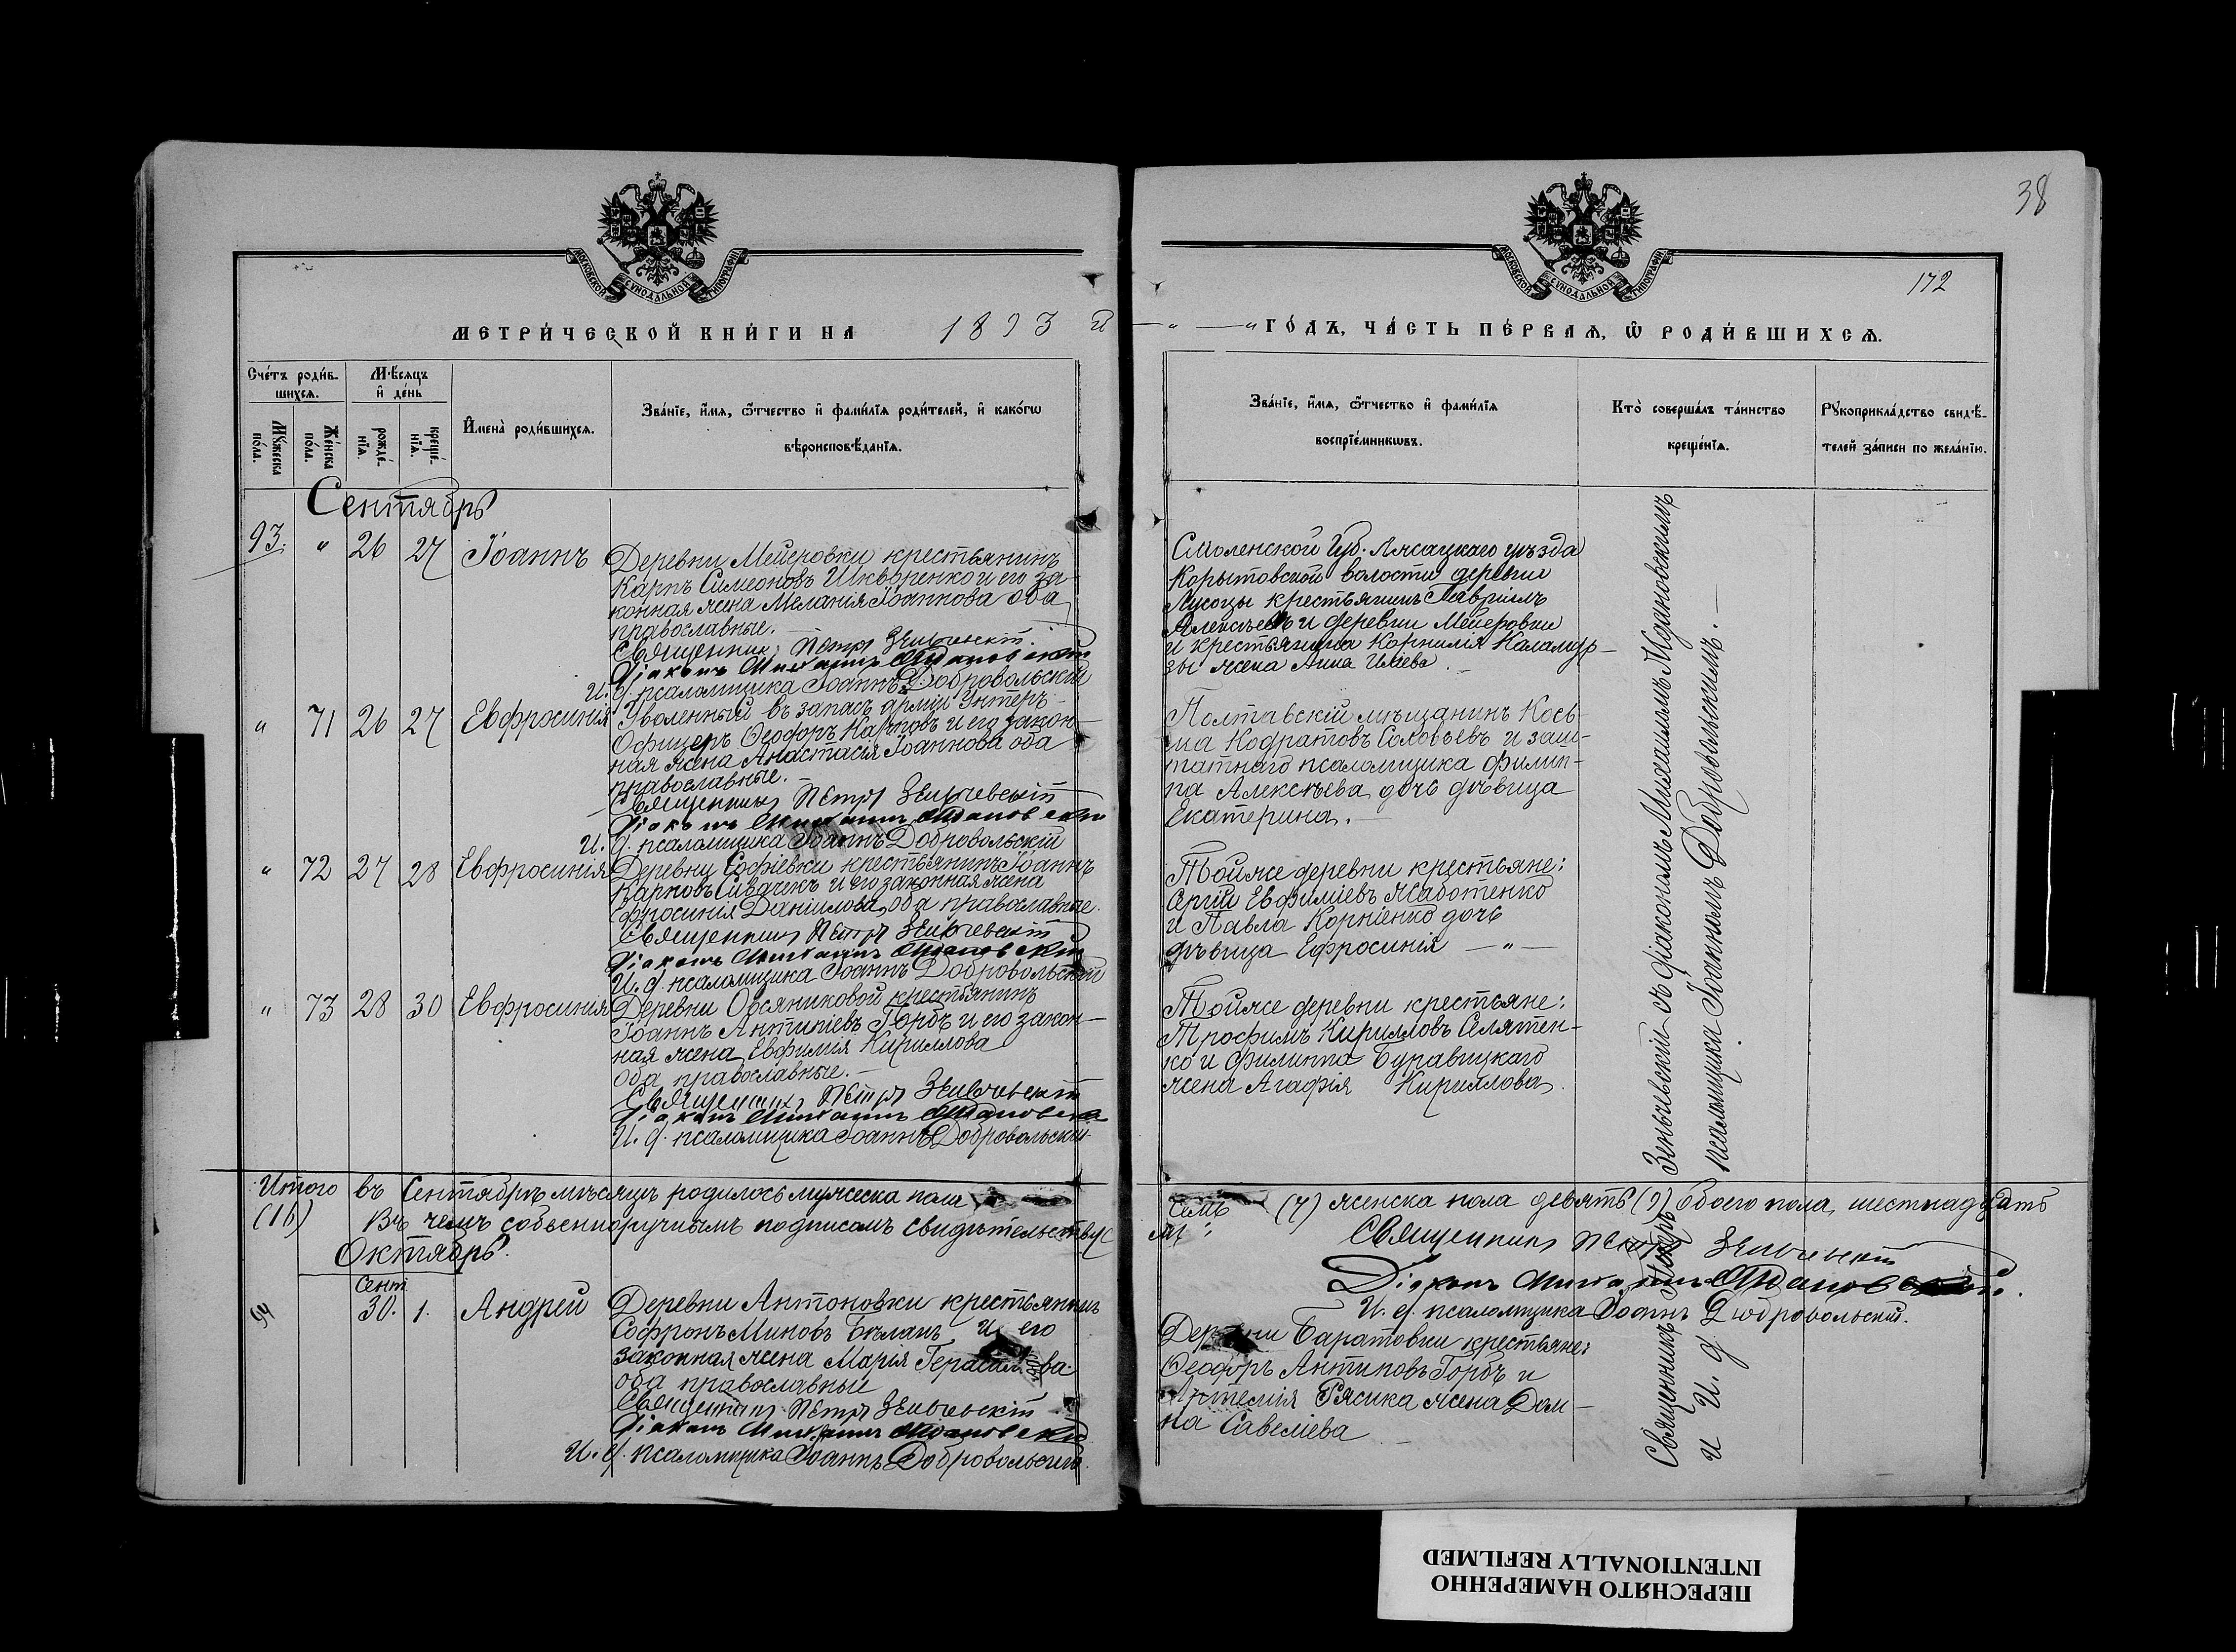 38
172
МОСКОВСКОЙ СѴНОДАЛЬНОЙ ТИПОГРАФІИ
МОСКОВСКОЙ СѴНОДАЛЬНОЙ ТИПОГРАФІИ
МЕТРИ́ЧЕСКОЙ КНИ́ГИ НА 1893 й
— " — " ГО́ДЪ, ЧА́СТЬ ПЕ́РВАѦ, Ѡ҆ РОДИ́ВШИХСѦ.
Сче́тъ роди́в-
шихсѧ.
Мꙋ́жеска по́ла.
Же́нска по́ла.
Мѣ́сѧцъ и҆ де́нь
рожде́-
нїѧ.
креще́-
нїѧ.
И҆мена̀ роди́вшихсѧ.
Зва́нїе, и҆́мѧ, ѻ҆́тчество и҆ фами́лїѧ роди́телей, и҆ како́гѡ
вѣроисповѣ́данїѧ.
Зва́нїе, и҆́мѧ, ѻ҆́тчество и҆ фами́лїѧ
воспрїе́мникѡвъ.
Кто̀ соверша́лъ та́инство
креще́нїѧ.
Рꙋкоприкла́дство свидѣ́-
телей за́писи по жела́нїю.
Сентябрь
93. " 26 27 Іоаннъ
Деревни Мейеровки крестьянинъ
Карпъ Симеоновъ Шкворенко и его за-
конная жена Меланія Іоаннова оба
православные.
Священникъ Петръ Зеньчевскій
Діаконъ Михаилъ Ждановскій
И. д. псаломщика Іоаннъ Добровольскій
Смоленской Губ. уѣзда
Корытовской волости деревни
крестьянинъ Гавріилъ
Алексѣевъ и деревни Мейеровки
и крестьянина Корнилія Каламур-
зы жена Анна Иліева.
" 71 26 27 Евфросинія
Уволенный въ запасъ арміи Унтеръ-
Офицеръ Ѳеодоръ Карповъ и его закон-
ная жена Анастасія Іоаннова оба
православные.
Священникъ Петръ Зеньчевскій
Діаконъ Михаилъ Ждановскій
И. д. псаломщика Іоаннъ Добровольскій
Полтавскій мѣщанинъ Кось-
ма Кодратовъ Соловьевъ и заш-
татнаго псаломщика Филип-
па Алексѣева дочь дѣвица
Екатерина.
" 72 27 28 Евфросинія
Деревни Софіевки крестьянинъ Іоаннъ
Карповъ Сивачекъ и его законная жена
фросинія Даніилова, оба православные.
Священникъ Петръ Зеньчевскій
Діаконъ Михаилъ Ждановскій
И. д. псаломщика Іоаннъ Добровольскій
Тойже деревни крестьяне:
Сергій Евфиміевъ Жаботенко
и Павла Корніенко дочь
дѣвица Ефросинія — " —
" 73 28 30 Евфросинія
Деревни Овсяниковой крестьянинъ
Іоаннъ Антипіевъ Горбъ и его закон-
ная жена Евфимія Кириллова
оба православные.
Священникъ Петръ Зеньчевскій
Діаконъ Михаилъ Ждановскій
И. д. псаломщика Іоаннъ Добровольскій
Тойже деревни крестьяне:
Трофимъ Кирилловъ Селятен-
ко и Филиппа Буравицкаго
жена Агафія Кириллова.
Зеньчевскій съ діакономъ Михаиломъ Ждановскимъ
псаломщика Іоанномъ Добровольскимъ.
Священникъ Петръ
и И. д
Итого въ Сентябрѣ мѣсяцѣ родилось мужеска пола семь (7) женска пола девять (9) обоего пола, шестнадцать
(16) Въ чемъ собственноручнымъ подписомъ свидѣтельствуемъ:
Священникъ Петръ Зеньчевскій
Діаконъ Михаилъ Ждановскій.
И. д. псаломщика Іоаннъ Добровольскій.
Октябрь.
Сент.
94 30. 1. Андрей
Деревни Антоновки крестьянинъ
Софронъ Миновъ Бѣланъ и его
законная жена Марія Герасимова
оба православные
Священникъ Петръ Зеньчевскій
Діаконъ Михаилъ Ждановскій
И. д. псаломщика Іоаннъ Добровольскій.
Деревни Баратовки крестьяне:
Ѳеодоръ Антиповъ Горбъ и
Артемія Рясика жена Дом-
на Савеліева
ПЕРЕСНЯТО НАМЕРЕННО
INTENTIONALLY REFILMED